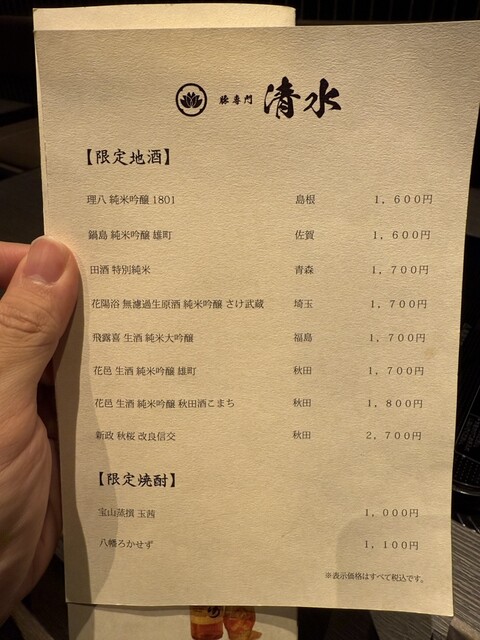 豚専門 清水
【限定地酒】
理八 純米吟醸 1801 島根 1,600円
鍋島 純米吟醸 雄町 佐賀 1,600円
田酒 特別純米 青森 1,700円
花陽浴 無濾過生原酒 純米吟醸 さけ武蔵 埼玉 1,700円
飛露喜 生酒 純米大吟醸 福島 1,700円
花邑 生酒 純米吟醸 雄町 秋田 1,700円
花邑 生酒 純米吟醸 秋田酒こまち 秋田 1,800円
新政 秋桜 改良信交 秋田 2,700円
【限定焼酎】
宝山蒸撰 玉茜 1,000円
八幡ろかせず 1,100円
※表示価格はすべて税込です。